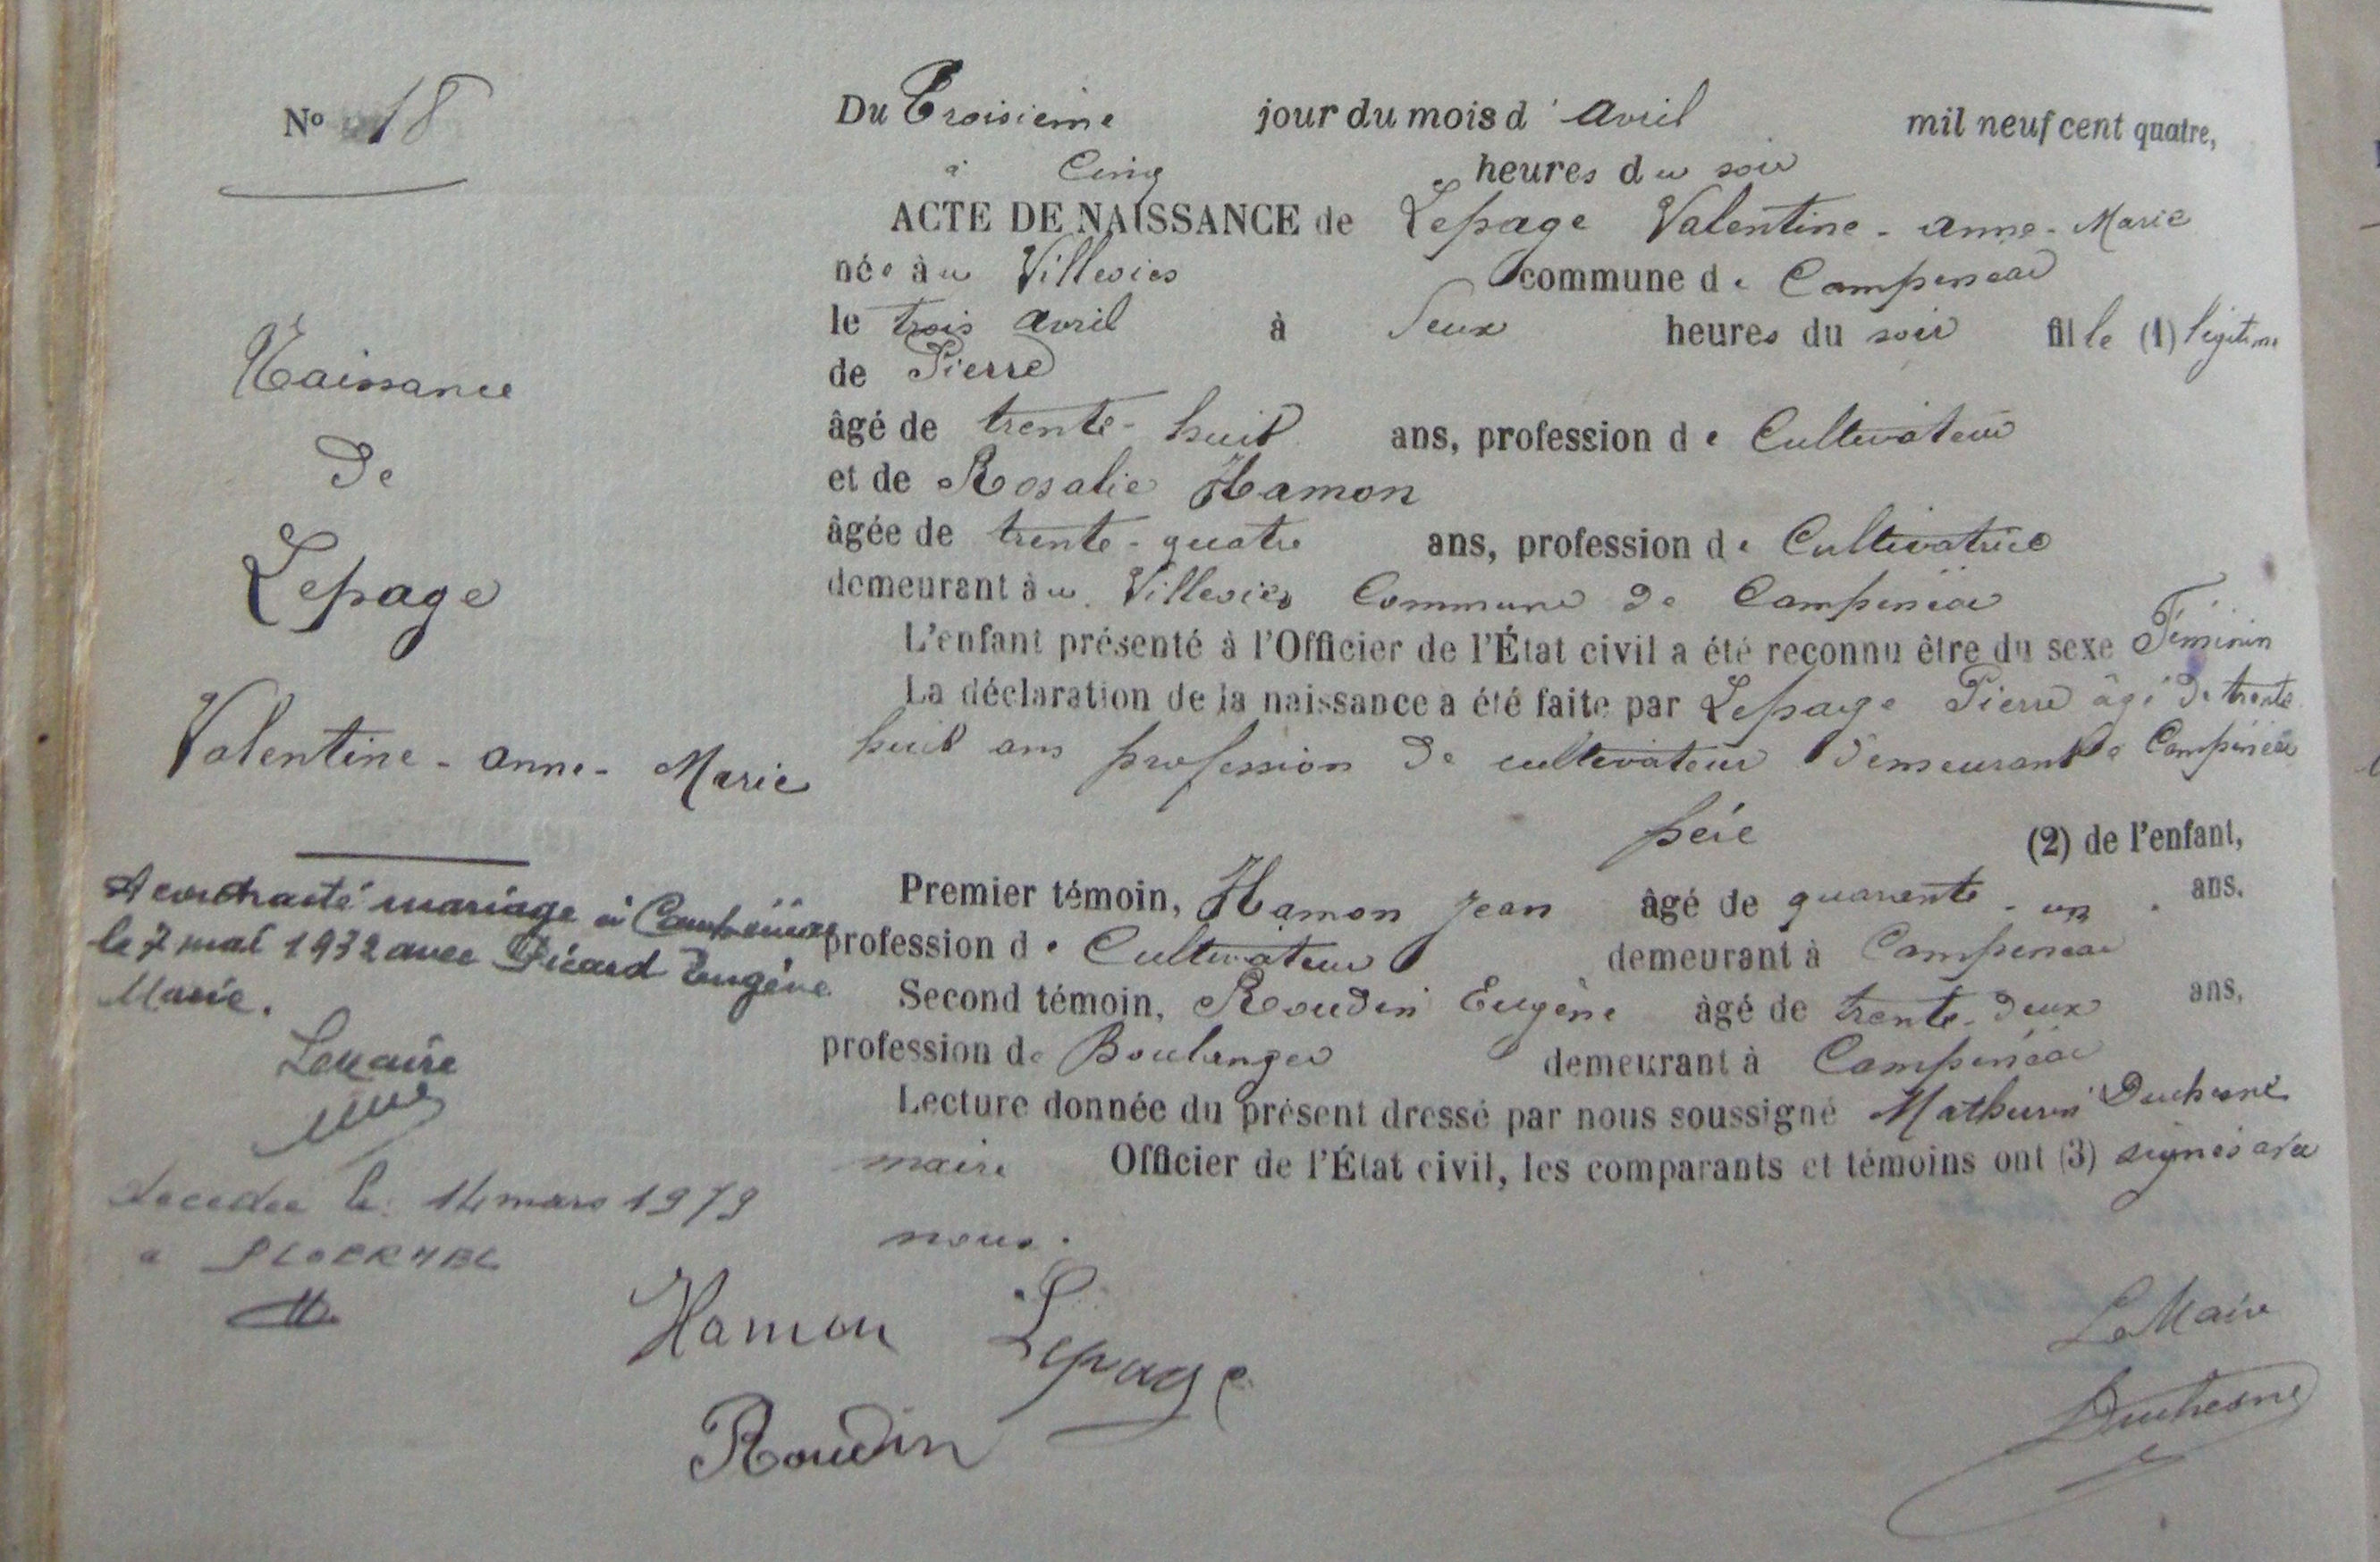 No 18
Naissance
De
Lepage
Valentine - Anne - Marie
A contracté mariage à Campénéac
le 7 mai 1932 avec Picard Eugène
Marie.
Le Maire
décédée le 14 mars 1979
a PLOERMEL
Du Troisième jour du mois d'Avril mil neuf cent quatre,
à Cinq heures du soir
ACTE DE NAISSANCE de Lepage Valentine - Anne - Marie
née àu commune de Campénéac
le trois Avril à deux heures du soir fille (1) légitime
de Pierre
âgé de trente-huit ans, profession de Cultivateur
et de Rosalie Hamon
âgée de trente-quatre ans, profession de Cultivatrice
demeurant àu Commune de Campénéac
L'enfant présenté à l'Officier de l'État civil a été reconnu être du sexe Féminin
La déclaration de la naissance a été faite par Lepage Pierre âgé de trente
huit ans profession de cultivateur demeurant à Campénéac
père (2) de l'enfant,
Premier témoin, Hamon Jean âgé de quarante - un ans.
profession de Cultivateur demeurant à Campénéac
Second témoin, Roudin Eugène âgé de trente-deux ans,
profession de Boulanger demeurant à Campénéac
Lecture donnée du présent dressé par nous soussigné Mathurin Duchesne
maire Officier de l'État civil, les comparants et témoins ont (3) signés avec
nous.
Hamon Lepage
Roudin
Le Maire
Duchesne